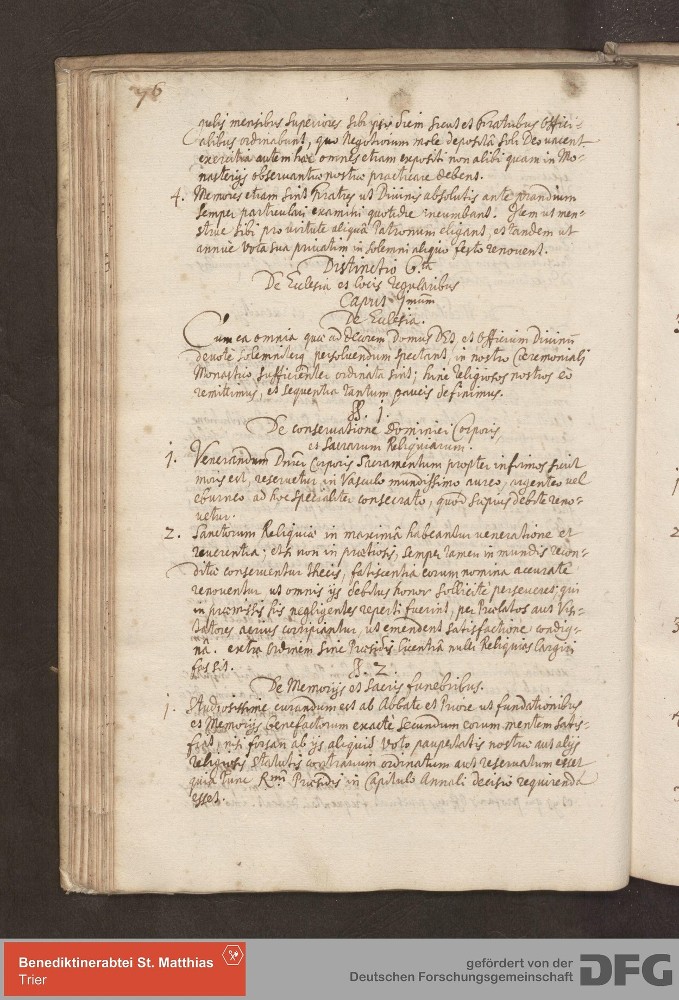 76
quibus mensibus Superiores sibi ipsis diem sicut et Fratribus Offici-
alibus ordinabunt, quo Negotiorum mole depositâ soli Deo vacent
exercitia autem haec omnes etiam expositi non alibi quam in Mo-
nasterijs observantiae nostrae practicare debent.
4. Memores etiam sint Fratres ut Divinis absolutis ante prandium
semper particulari examini quotidie incumbant. Item ut men-
strue sibi pro virtute aliqua Patronum eligant, et tandem ut
annue vota sua privatim in solemni aliquo festo renovent.
Distinctio 6.ta
De Ecclesia et locis regularibus
Caput Imum
De Ecclesia.
Cum ea omnia quae ad decorem Domus DEI, et Officium Divinū
devote solemniterq persolvendum spectant, in nostro Caeremoniali
Monastico sufficienter ordinata sint; hinc religiosos nostros eò
remittimus, et sequentia tantum paucis definimus.
§. 1.
De conservatione Dominici Corporis
et Sacrarum Reliquiarum.
1. Venerandum Dnici Corporis Sacramentum propter infirmos sicut
moris est, reservetur in Vasculo mundissimo aureo, argenteo vel
eburneo ad hoc specialiter consecrato, quod saepius debite reno-
vetur.
2. Sanctorum Reliquiae in maximâ habeantur veneratione et
reverentia; etsi non in pretiosis, semper tamen in mundis recon-
ditae conserventur thecis, fatiscentia eorum nomina accurate
renoventur ut omnis ijs debitus honor sollicite perseveret; qui
in praemissis his negligentes reperti fuerint, per Praelatos aut Visi-
tatores acrius corripiantur, ut emendent satisfactione condig-
nâ. extra Ordinem sine Praesidis licentiâ nulli Reliquias largiri
fas sit.
§. 2.
De Memorijs et Sacris funebribus.
1. Studiosissime curandum est ab Abbate et Priore ut fundationibus
et Memorijs Benefactorum exacte secundum eorum mentem satis-
fiat, nisi forsan ab ijs aliquid voto paupertatis nostrae aut alijs
religiosis statutis contrarium ordinatum aut reservatum esset
quia tunc Rmi Praesidis in Capitulo Annali decisio requirenda
esset.
Benediktinerabtei St. Matthias
Trier
gefördert von der
Deutschen Forschungsgemeinschaft
DFG